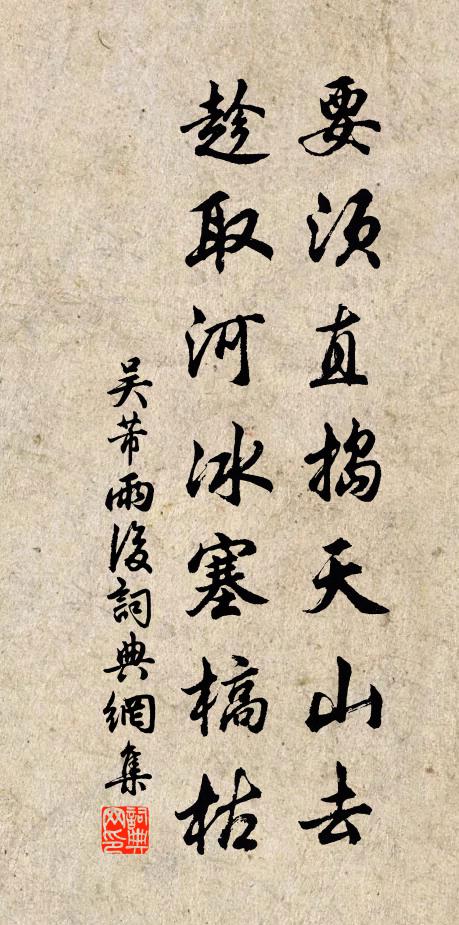 要須直搗天山去
趁取河冰塞槁枯
吴芾雨後詞典網集
詞典網印